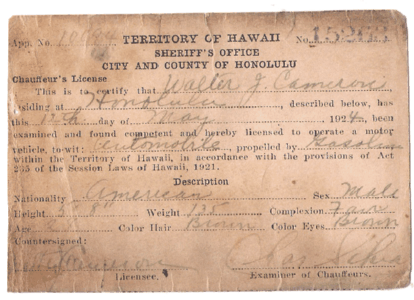 App. No. TERRITORY OF HAWAII No.
SHERIFF'S OFFICE
CITY AND COUNTY OF HONOLULU
Chauffeur's License
This is to certify that Walter J. Cameron
residing at Honolulu, described below, has
this day of May, 1924, been
examined and found competent and hereby licensed to operate a motor
vehicle, to-wit: automobile, propelled by
within the Territory of Hawaii, in accordance with the provisions of Act
of the Session Laws of Hawaii, 1921.
Description
Nationality American Sex Male
Height Weight Complexion Fair
Age Color Hair Brown Color Eyes Brown
Countersigned:
Licensee. Examiner of Chauffeurs.